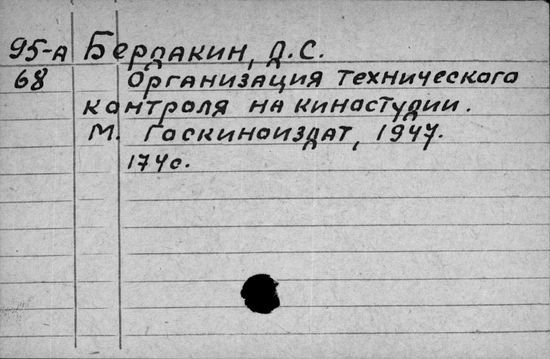 95-А Бердакин, Д.С.
68 Организация технического
контроля на киностудии.
М. Госкиноиздат, 1947.
174с.